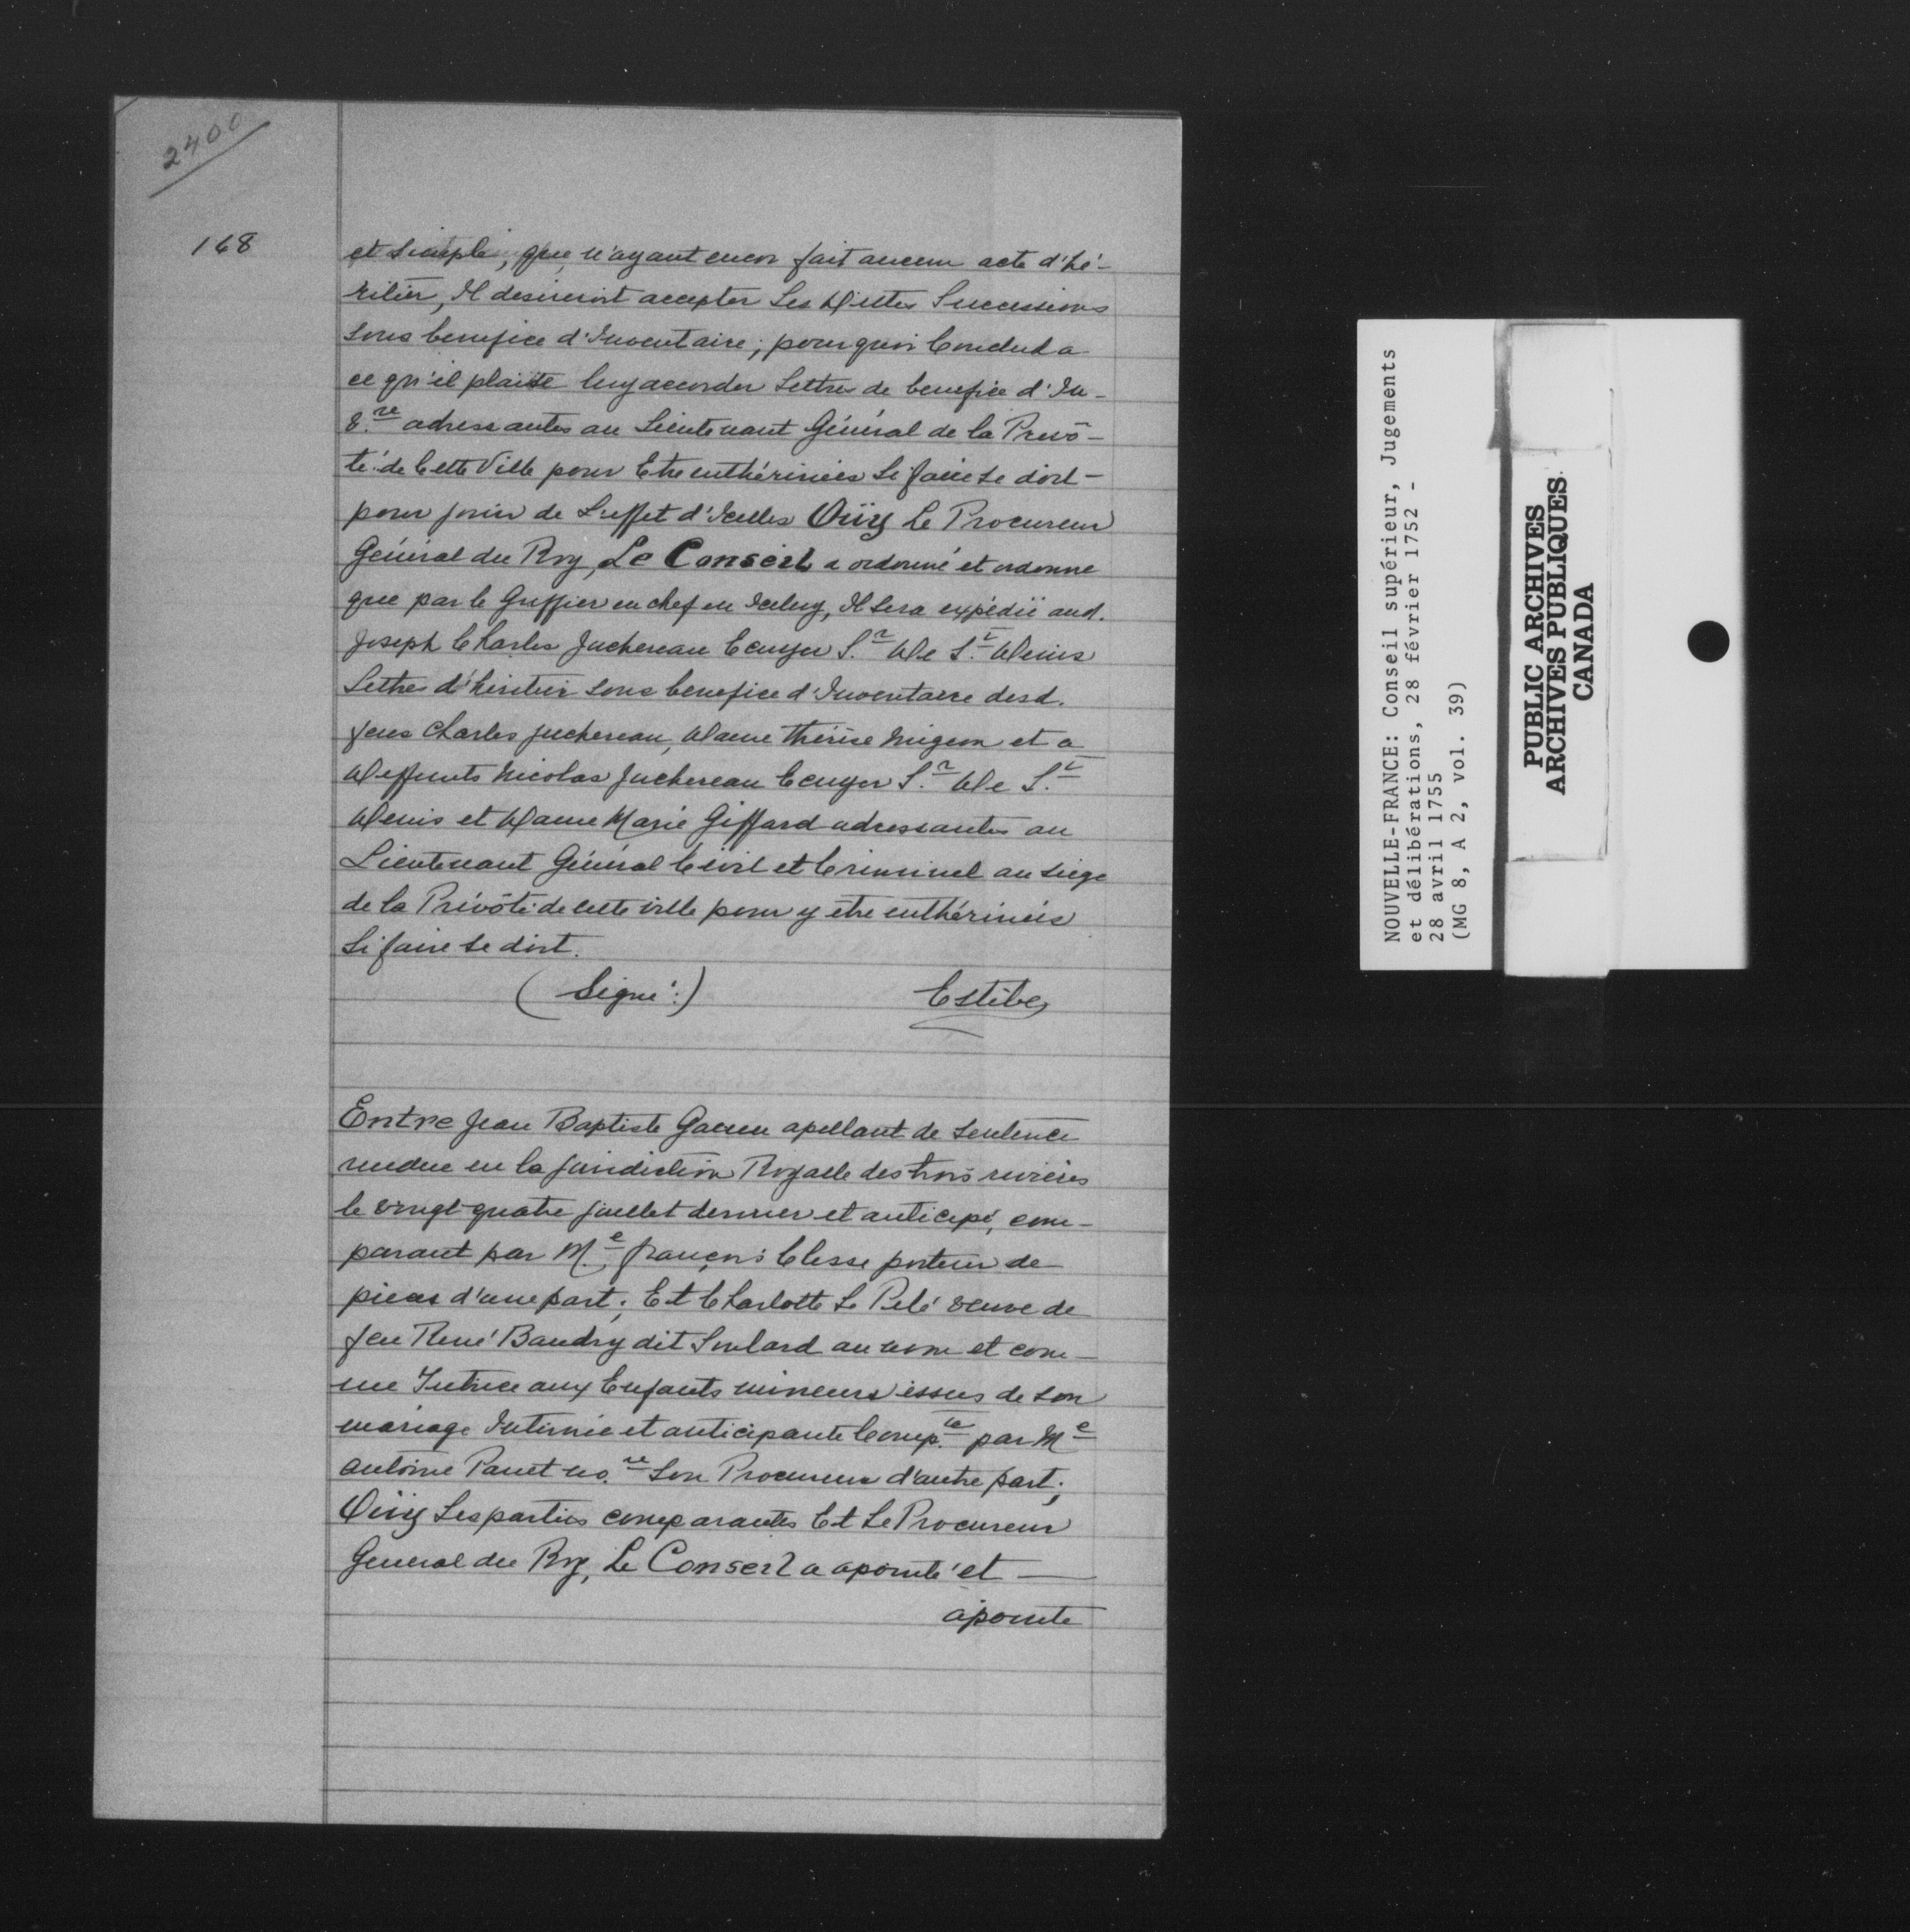 2400
168
et Simple, que n'ayant encor fait aucun acte d'hé-
ritier, Il desireroit accepter Les Dittes Successions
sous benefice d'Inventaire; pourquoi Conclud a
ce qu'il plaise luy accorder Lettres de benefice d'In-
8.re adressantes au Lieutenant Général de la Prevô-
té de Cette Ville pour Etre enthérinées Si faire se doit -
pour jouir de L'effet d'Icelles Oüy Le Procureur
Général du Roy, Le Conseil a ordonné et ordonne
que par le Greffier en chef en Iceluy, Il Sera expédié aud.
Joseph Charles Juchereau Ecuyer S.r De S.t Denis
Lettres d'héritier sous benefice d'Inventaire desd.
feus Charles Juchereau, Dame Thérèse Migeon et a
Deffunts Nicolas Juchereau Ecuyer S.r De S.t
Denis et Dame Marie Giffard adressantes au
Lieutenant Général Civil et Criminel au siège
de la Prévôté de cette ville pour y être enthérinées
Si faire se doit.
(Signé:) Estèbe
Entre Jean Baptiste apellant de Sentence
rendue en la Juridiction Royalle des trois rivières
le vingt quatre juillet dernier et anticipé, com-
parant par M.e françois Clesse porteur de
pieces d'une part; Et Charlotte Le Pelé veuve de
feu René Baudry dit Soulard au nom et com-
me Tutrice aux Enfants mineurs issus de son
mariage Intimée et anticipante Comp.te par M.e
antoine Panet no.re Son Procureur d'autre part;
Oüy Les parties comparantes Et Le Procureur
General du Roy, Le Conseil a apointé et —
apointe
NOUVELLE-FRANCE: Conseil supérieur, Jugements
et délibérations, 28 février 1752 -
28 avril 1755
(MG 8, A 2, vol. 39)
PUBLIC ARCHIVES
ARCHIVES PUBLIQUES
CANADA